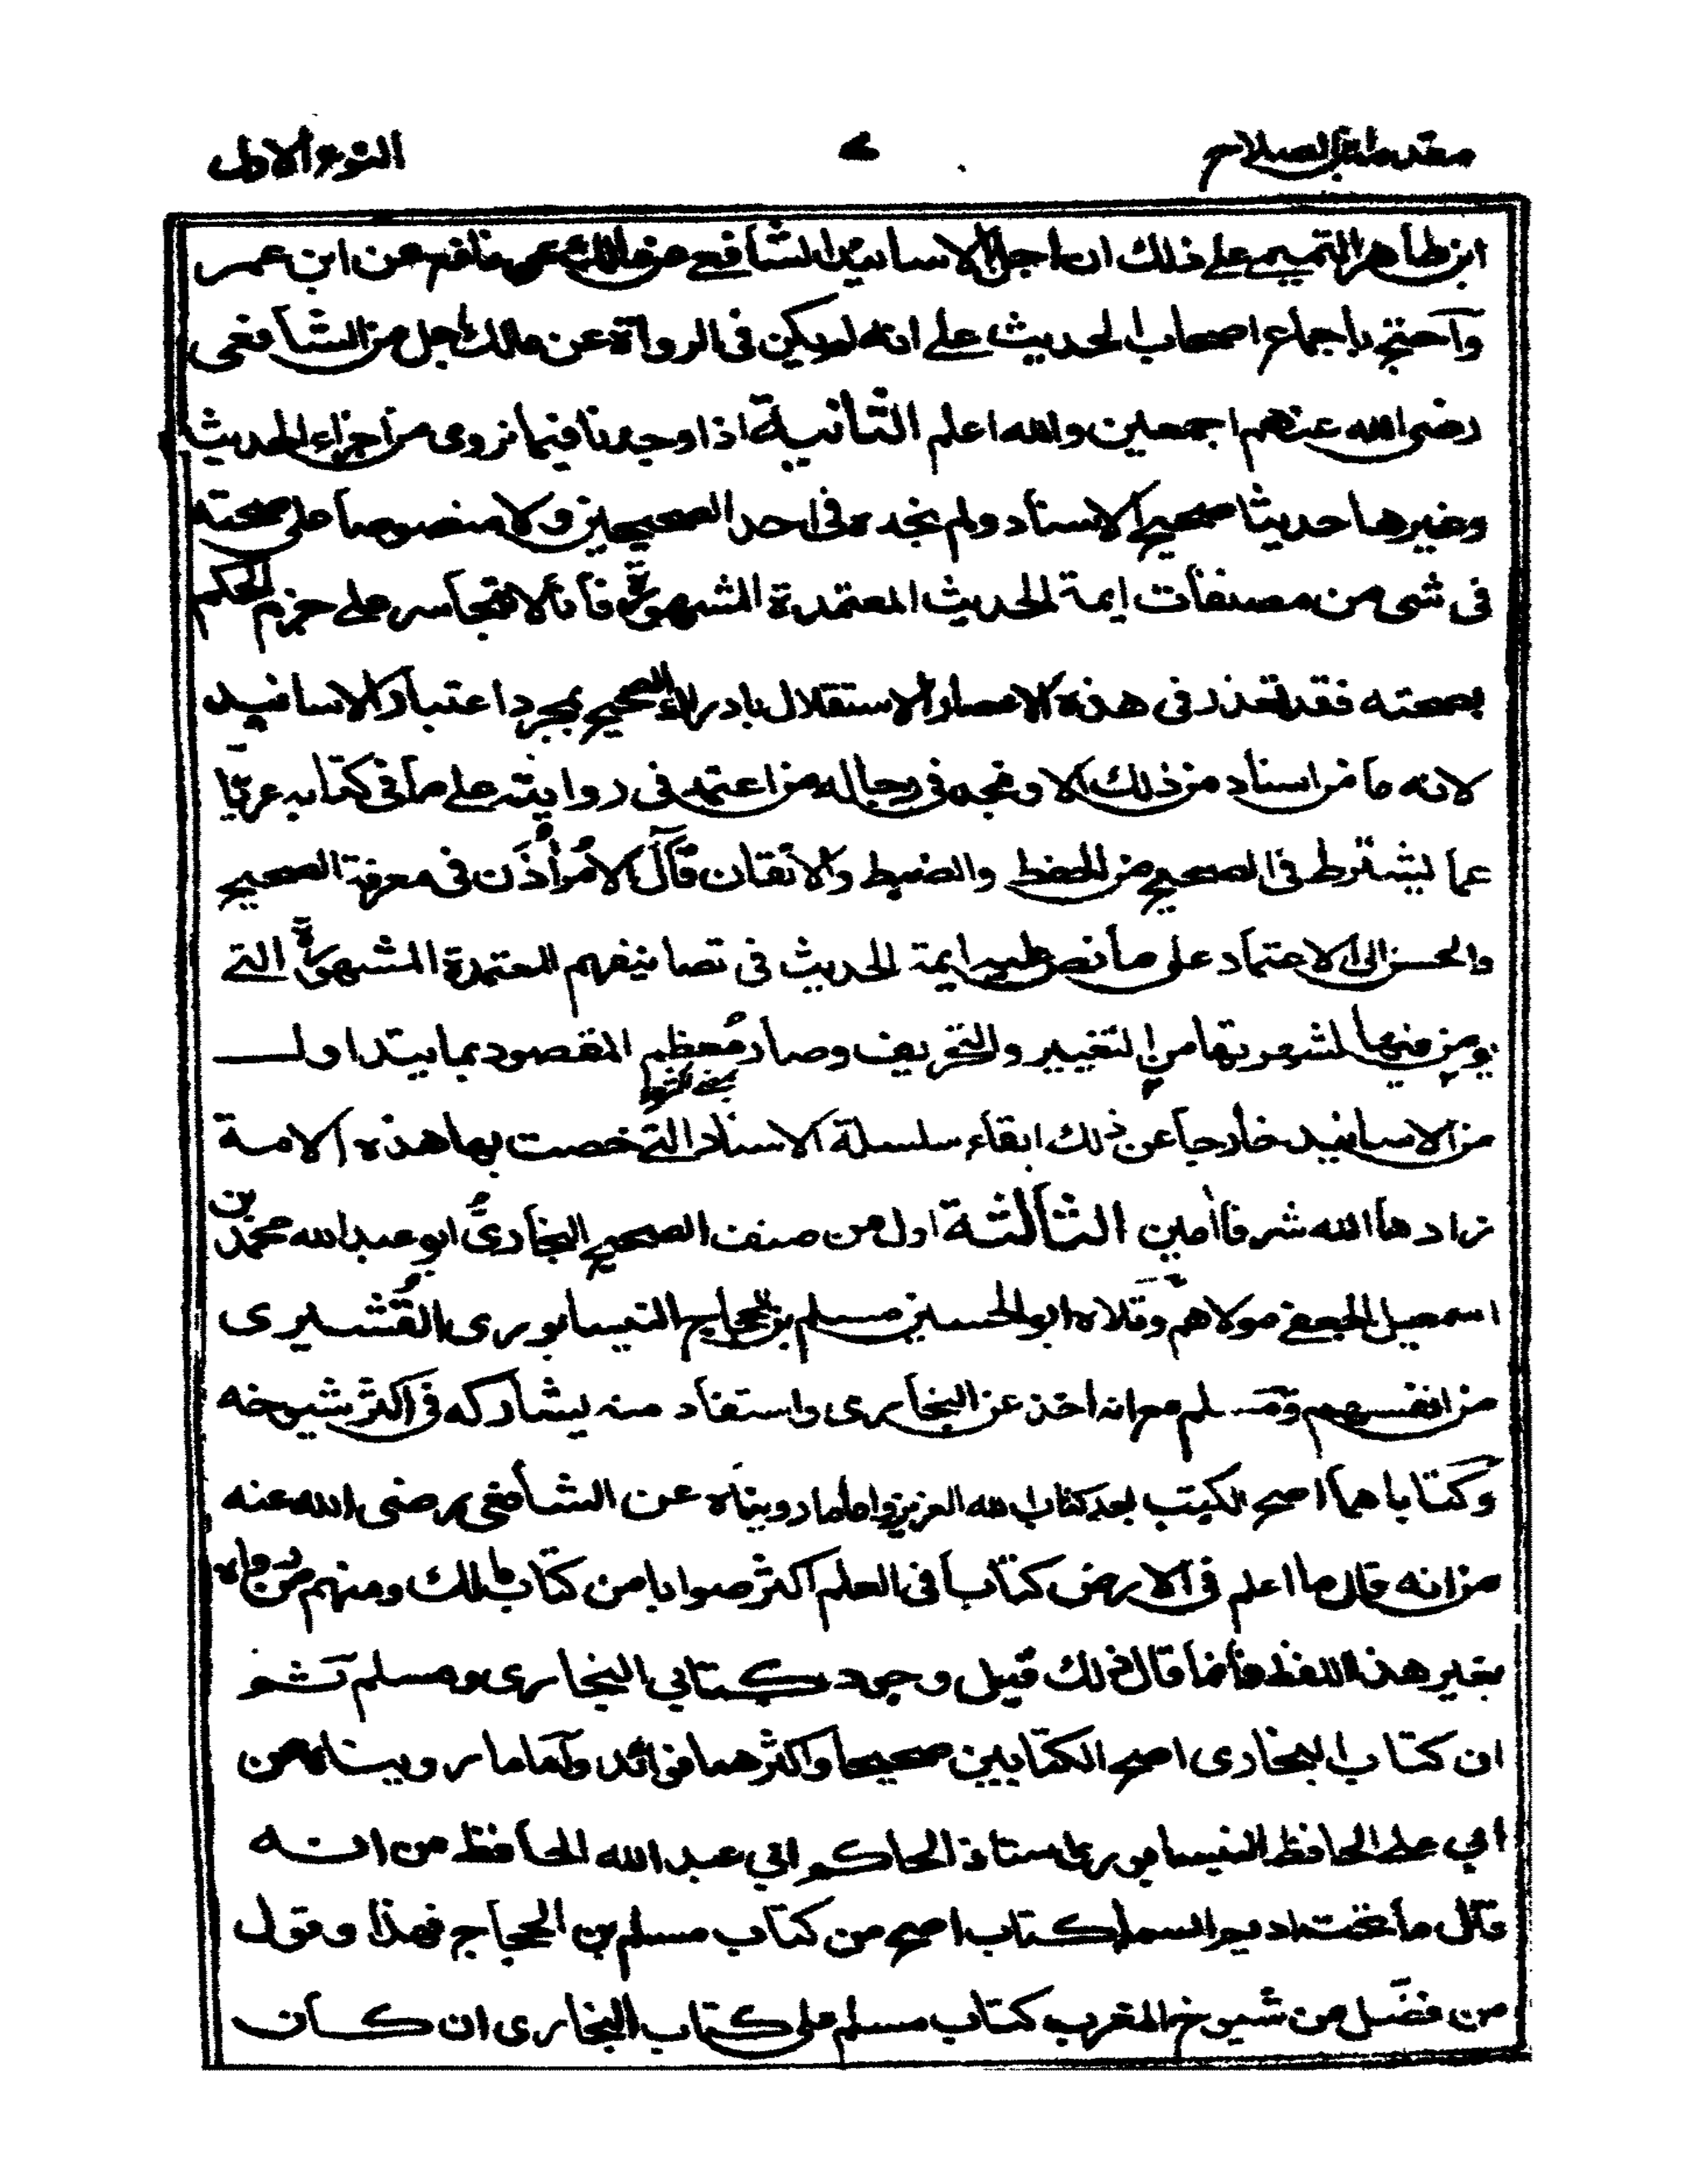 مقدمة ابن الصلاح
النوع الاول
ابن طاهر التميمى على ذلك ان اجل الاسانيد الشافعى عن مالك عن نافع عن ابن عمر
وآحتج باجماع اصحاب الحديث على انه لم يكن فى الرواة عن مالك اجل من الشافعى
رضى الله عنهم اجمعين والله اعلم الثانية اذا وجدنا فيما نروى من اجزاء الحديث
وغيرها حديثا صحيح الاسناد ولم نجده فى احد الصحيحين ولا منصوصا على صحته
فى شى من مصنفات ايمة الحديث المعتمدة المشهورة فانا لا نتجاسر على جزم الحكم
بصحته فقد تعذر فى هذه الاعصار الاستقلال بادراك الصحيح بمجرد اعتبار الاسانيد
لانه ما من اسناد من ذلك الا ونجد فى رجاله من اعتمد فى روايته على ما فى كتابه عريّا
عما يشترط فى الصحيح من الحفظ والضبط والاتقان فآل الامر اذن فى معرفة الصحيح
والحسن الى الاعتماد على ما نص عليه ايمة الحديث فى تصانيفهم المعتمدة المشهورة التى
يومن فيها لشهرتها من التغيير والتحريف وصار معظم المقصود بما يتداول
من الاسانيد خارجا عن ذلك ابقاء سلسلة الاسناد التى خصت بها هذه الامة
زادها الله شرفا امين الثالثة اول من صنف الصحيح البخارى ابو عبد الله محمد بن
اسمعيل الجعفى مولاهم وتلاه ابو الحسين مسلم بن الحجاج النيسابورى القُشيرى
من انفسهم ومسلم مع انه اخذ عن البخارى واستفاد منه يشاركه فى اكثر شيوخه
وكتاباهما اصح الكتب بعد كتاب الله العزيز واما ما رويناه عن الشافعى رضى الله عنه
من انه قال ما اعلم فى الارض كتابا فى العلم اكثر صوابا من كتاب مالك ومنهم من رواه
بغير هذا اللفظ فانما قال ذلك قبل وجود كتابي البخارى ومسلم ثم
ان كتاب البخارى اصح الكتابين صحيحا واكثرهما فوائد واما ما رويناه عن
ابي على الحافظ النيسابورى استاذ الحاكم ابي عبد الله الحافظ من انه
قال ما تحت اديم السماء كتاب اصح من كتاب مسلم بن الحجاج فهذا وقول
من فضّل من شيوخ المغرب كتاب مسلم على كتاب البخارى ان كان